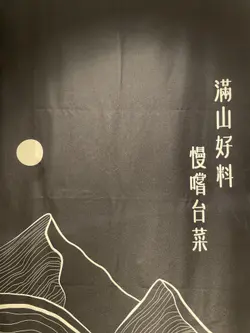 滿山好料
慢嚐台菜